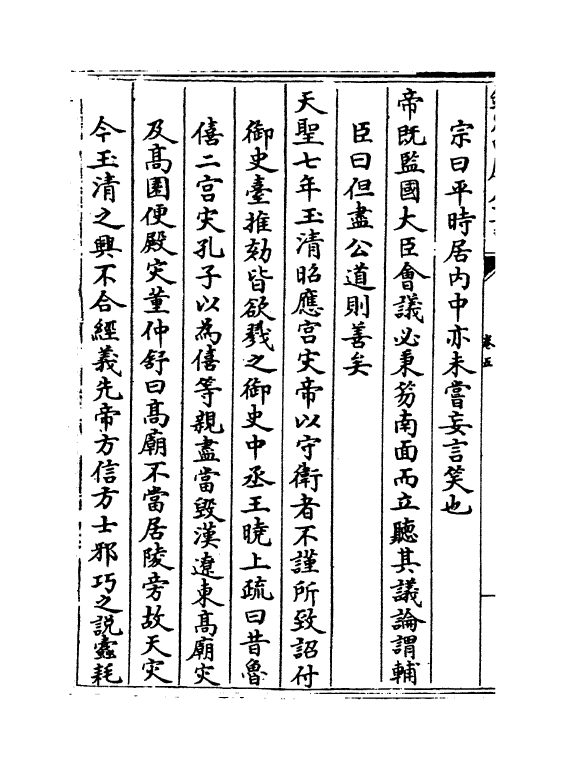 宗曰平時居内中亦未嘗妄言笑也
帝既監國大臣會議必秉笏南面而立聽其議論謂輔
臣曰但盡公道則善矣
天聖七年玉清昭應宫灾帝以守衛者不謹所致詔付
御史臺推劾皆欲戮之御史中丞王曉上疏曰昔魯
僖二宫灾孔子以為僖等親盡當毀漢遼東髙廟灾
及髙園便殿灾董仲舒曰髙廟不當居陵旁故天灾
今玉清之興不合經義先帝方信方士邪巧之說蠧耗
卷五